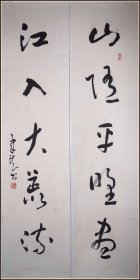 山隨平野盡
江入大荒流